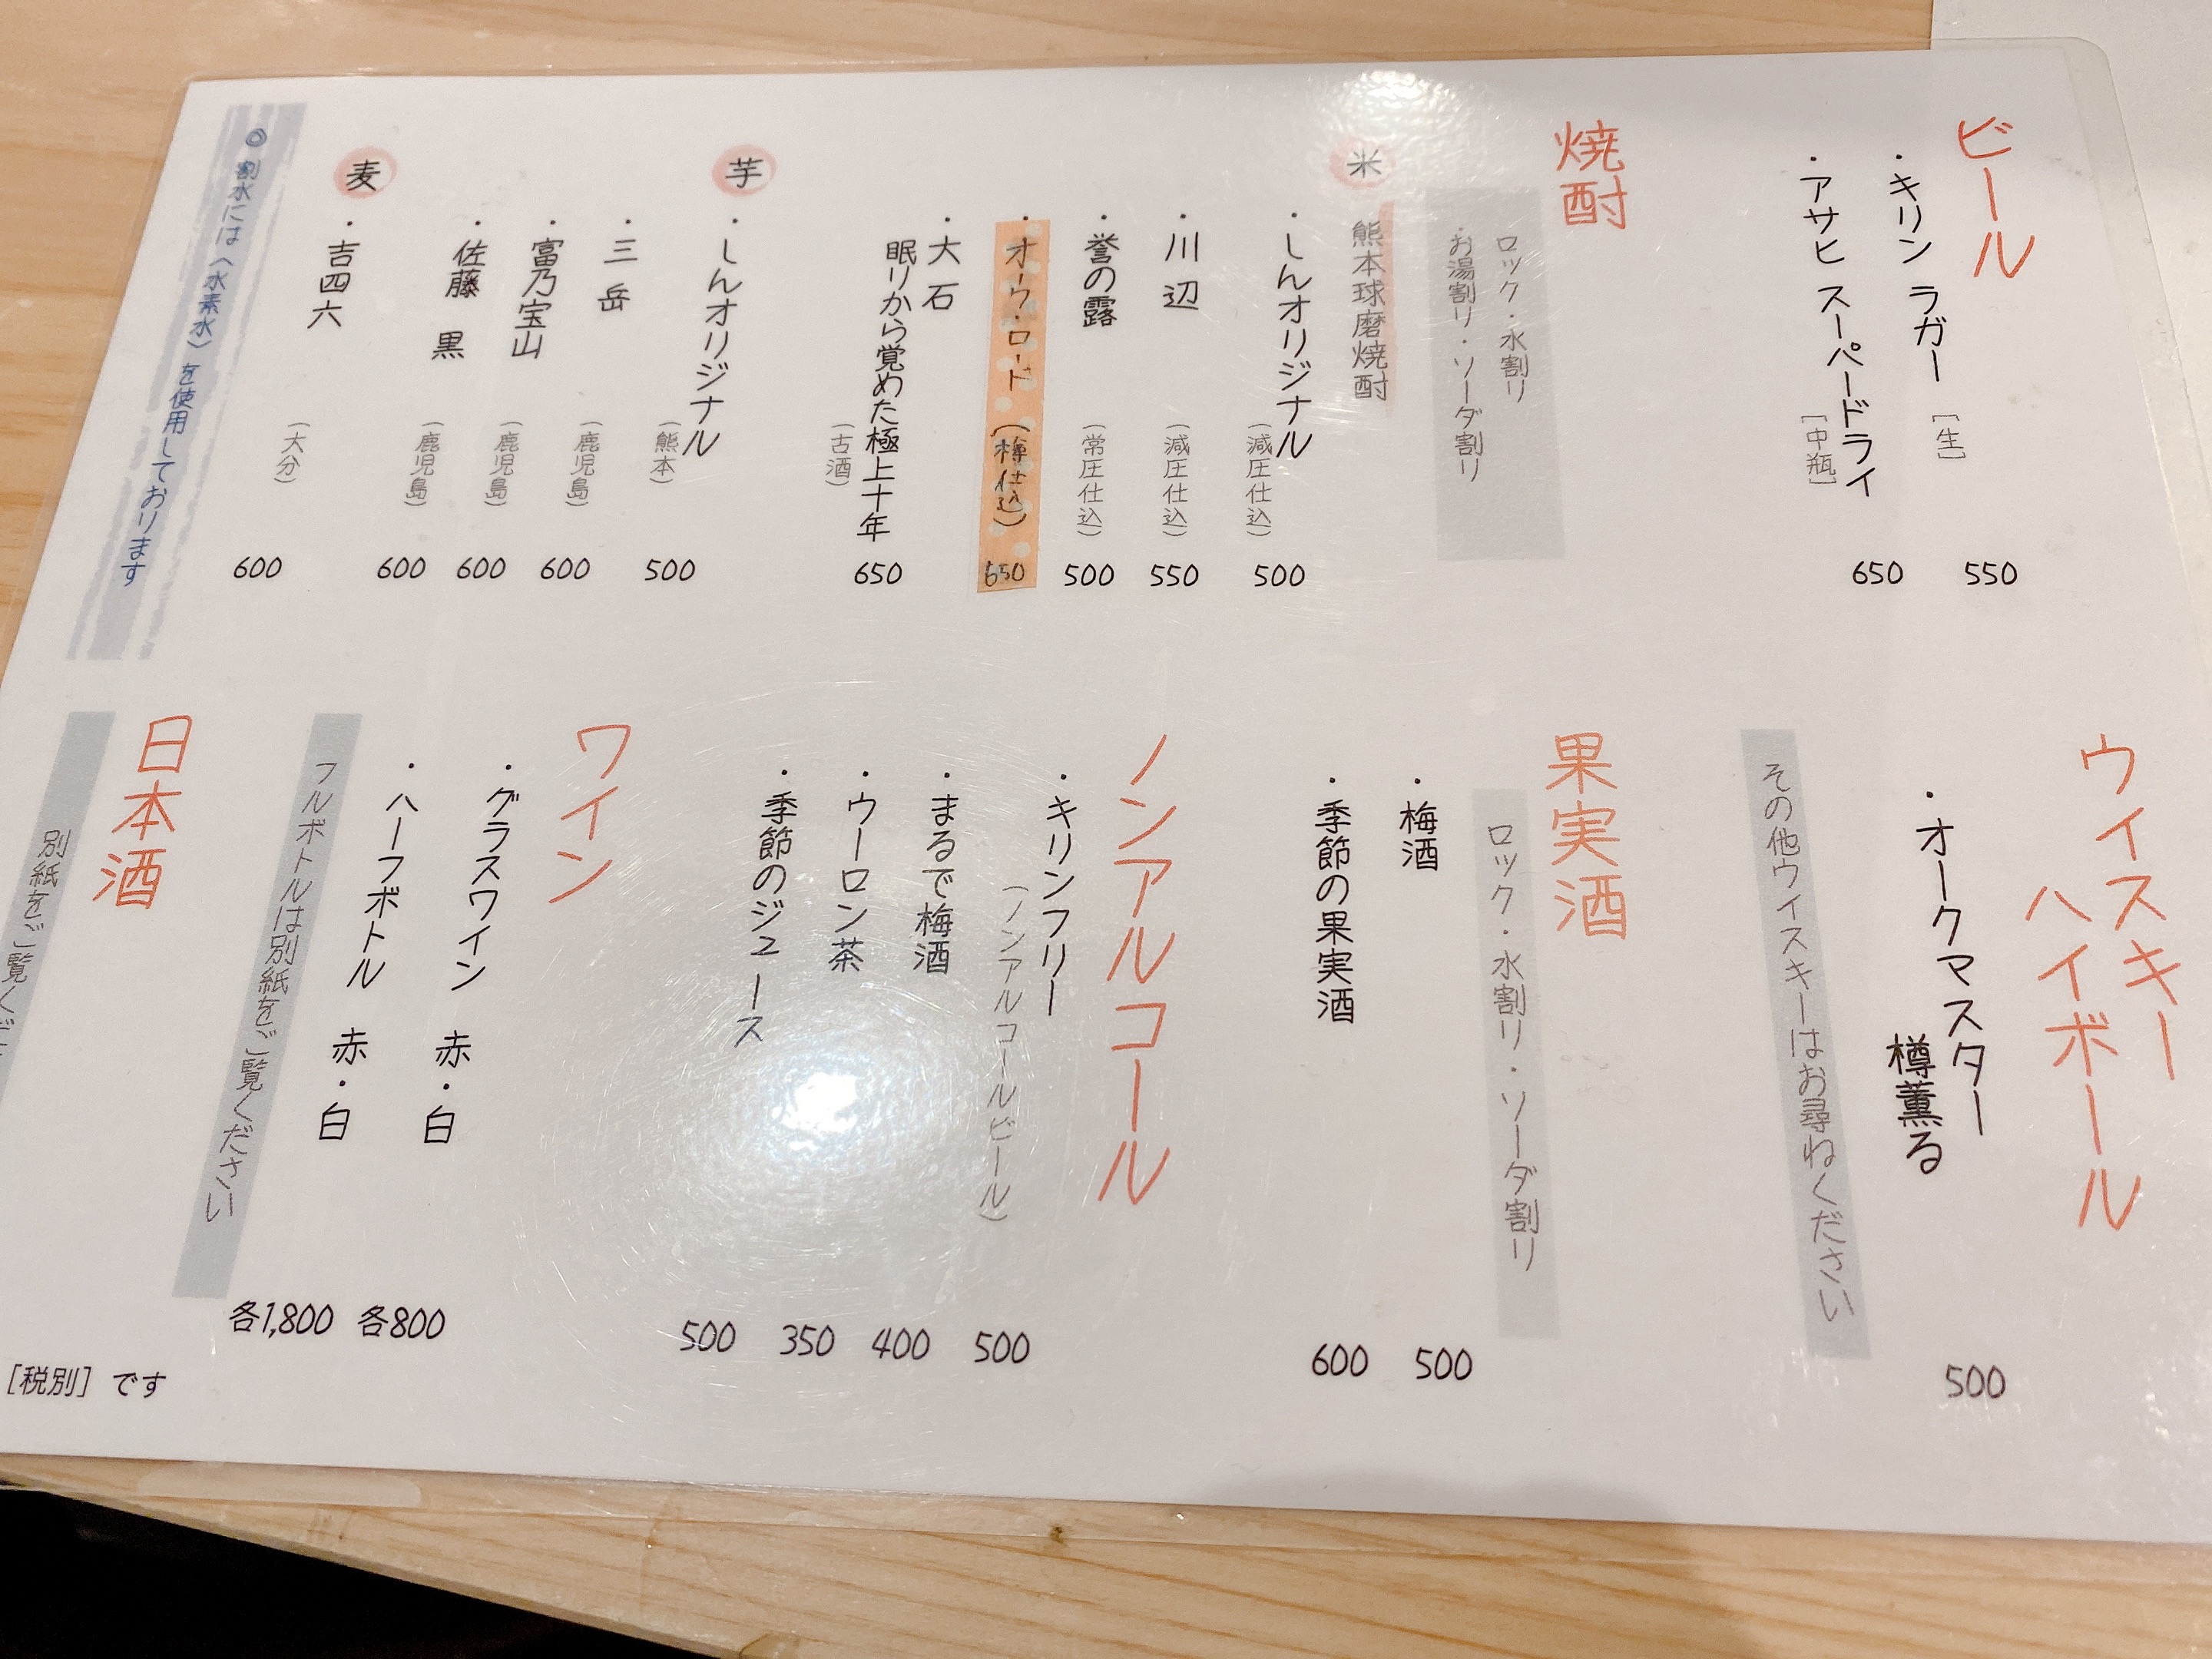 ビール
・キリン ラガー [生] 550
・アサヒ スーパードライ [中瓶] 650
焼酎
ロック・水割り
・お湯割り・ソーダ割り
米 熊本球磨焼酎
・しんオリジナル (減圧仕込) 500
・川辺 (減圧仕込) 550
・誉の露 (常圧仕込) 500
・オウ・ロード (樽仕込) 650
・大石
眠りから覚めた極上十年 650
(古酒)
芋 ・しんオリジナル (熊本) 500
・三岳 (鹿児島) 600
・富乃宝山 (鹿児島) 600
・佐藤 黒 (鹿児島) 600
麦 ・吉四六 (大分) 600
◎割水には〈水素水〉を使用しております
ウィスキー
ハイボール
・オークマスター
樽薫る 500
その他ウィスキーはお尋ねください
果実酒
ロック・水割り・ソーダ割り
・梅酒 500
・季節の果実酒 600
ノンアルコール
・キリンフリー
(ノンアルコールビール) 500
・まるで梅酒 400
・ウーロン茶 350
・季節のジュース 500
ワイン
・グラスワイン 赤・白 各800
・ハーフボトル 赤・白 各1,800
フルボトルは別紙をご覧ください
日本酒
別紙をご覧くだ
[税別]です